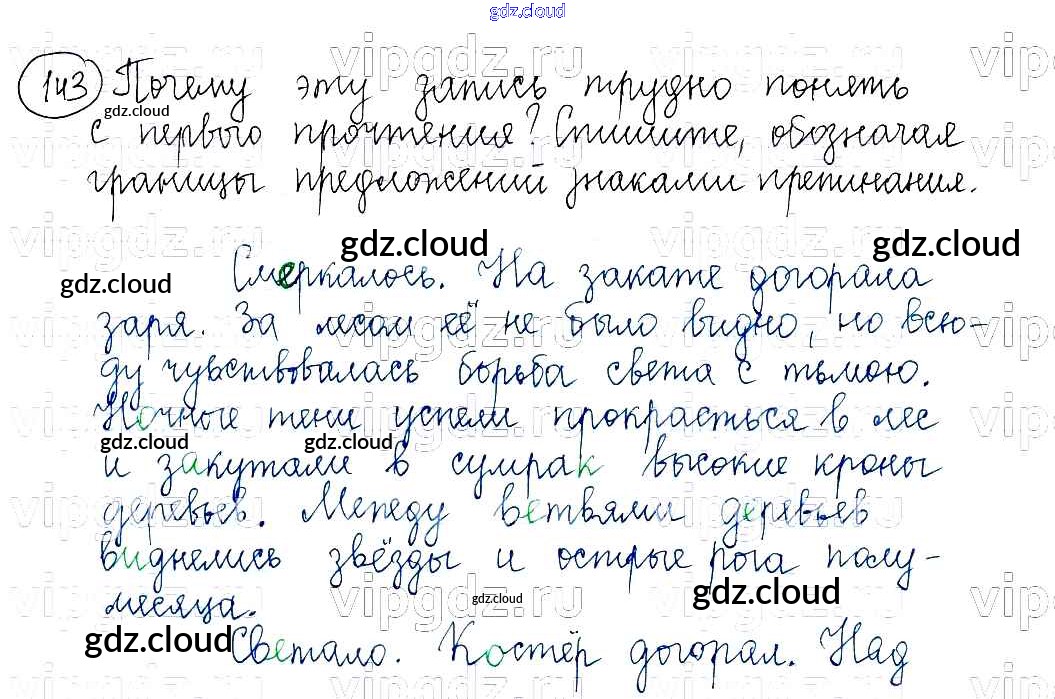 gdz.cloud
143 Почему эту запись трудно понять
с первого прочтения? Спишите, обозначая
границы предложений знаками препинания.
Смеркалось. На закате догорала
заря. За лесом её не было видно, но всю-
ду чувствовалась борьба света с тьмою.
Ночные тени успели прокрасться в лес
и закутали в сумрак высокие кроны
деревьев. Между ветвями деревьев
виднелись звёзды и острые рога полу-
месяца.
Светало. Костёр догорал. Над